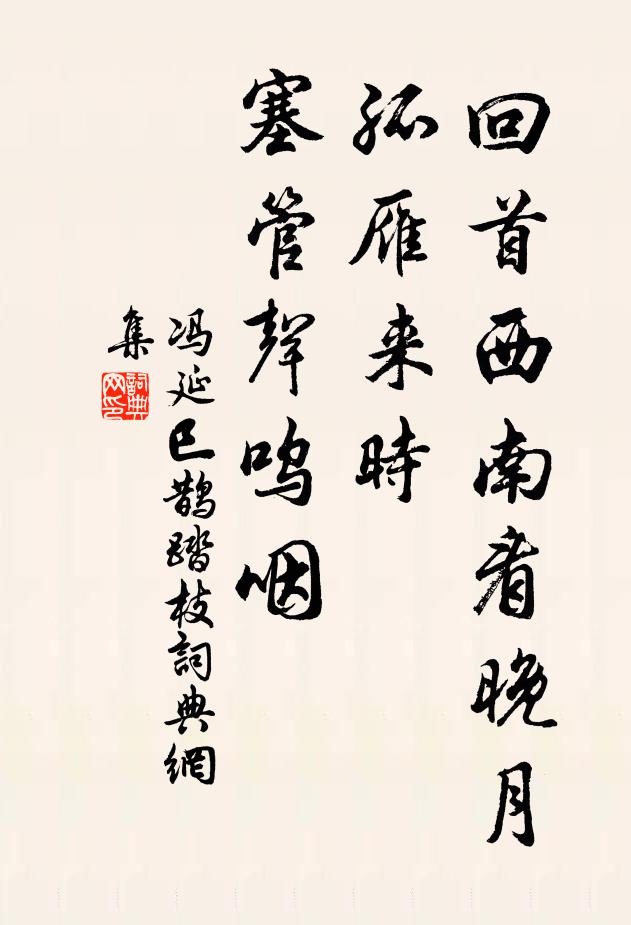 回首西南看晚月
孤雁来時
塞管聲呜咽
冯延巳鹊踏枝詞典網
集
詞典网印